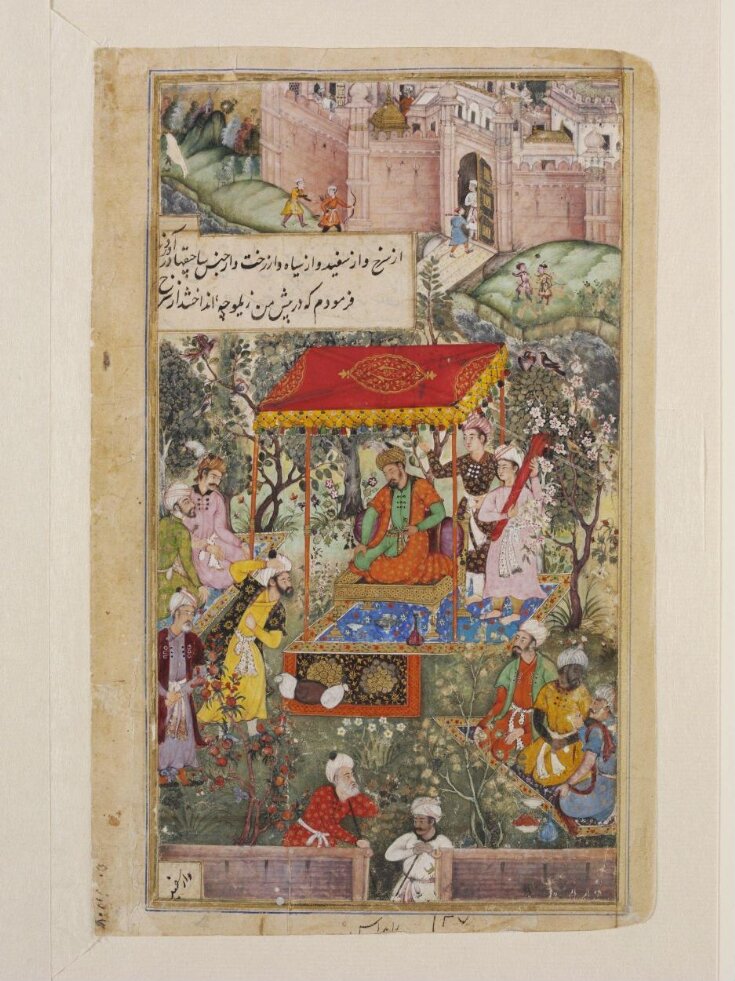 از سرخ و از سفید و از سیاه و از رخت و از جنس ساچیقها آوردند
فرمودم که در پیش من زیلوچه انداختند از سرخ
و از سفید
رامداس ۱۳۷